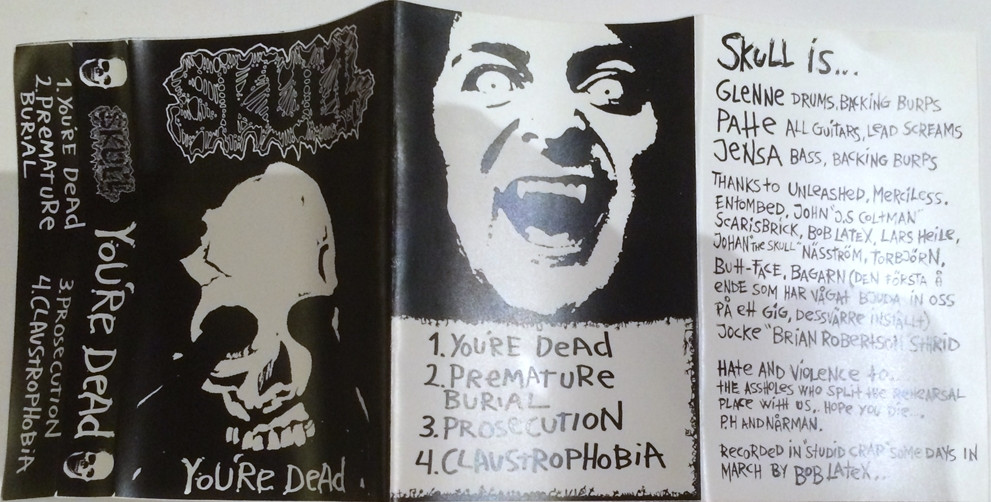 1. YOURE DEAD
2. PREMATURE
BURIAL
3. PROSECUTION
4. CLAUSTROPHOBIA
SKULL
YOU'RE DEAD
SKULL
YOU'RE DEAD
1. YOU'RE DEAD
2. PREMATURE
BURIAL
3. PROSECUTION
4. CLAUSTROPHOBIA
SKULL is...
GLENNE DRUMS, BACKING BURPS
PAttE ALL GUITARS, LEAD SCREAMS
JENSA BASS, BACKING BURPS
THANKS to UNLEASHED, MERCILESS.
ENTOMBED, JOHN "J.S COLTMAN"
SCARISBRICK, BOB LATEX, LARS HEILE,
JOHAN "THE SKULL" NÄSSTRÖM, TORBJÖRN,
BUtt-FACE, BAGARN (DEN FÖRSTA Å
ENDE SOM HAR VÅGAT BJUDA IN OSS
PÅ Ett GIG, DESSVÄRRE INSTÄLLT)
JOCKE "BRIAN ROBERTSON"
HATE AND VIOLENCE to...
THE ASSHOLES WHO SPLIT THE REHEARSAL
PLACE WITH US,. HOPE YOU DIE...
P.H AND NÅRMAN.
RECORDED IN "STUDIO CRAP" SOME DAYS IN
MARCH BY BOB LATEX..